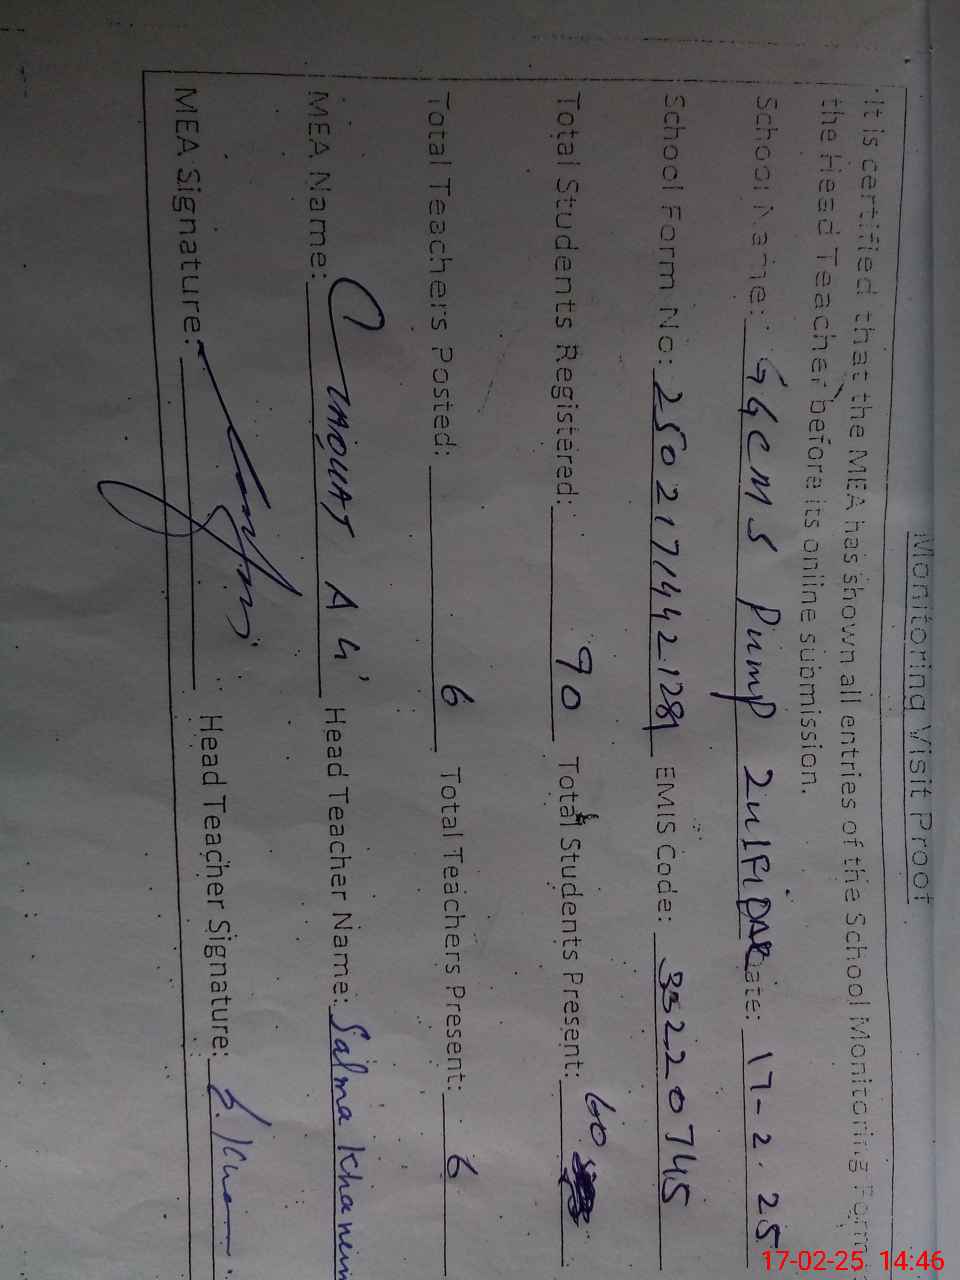 Monitoring Visit Proof
It is certified that the MEA has shown all entries of the School Monitoring Form
the Head Teacher before its online submission.
School Name: GGCMS Pump Date: 17-2.25
School Form No: EMIS Code: 35220745
Total Students Registered: 90 Total Students Present: 60
Total Teachers Posted: 6 Total Teachers Present: 6
MEA Name: LIAQUAT Ali Head Teacher Name: Salma
MEA Signature: Head Teacher Signature:
17-02-25 14:46